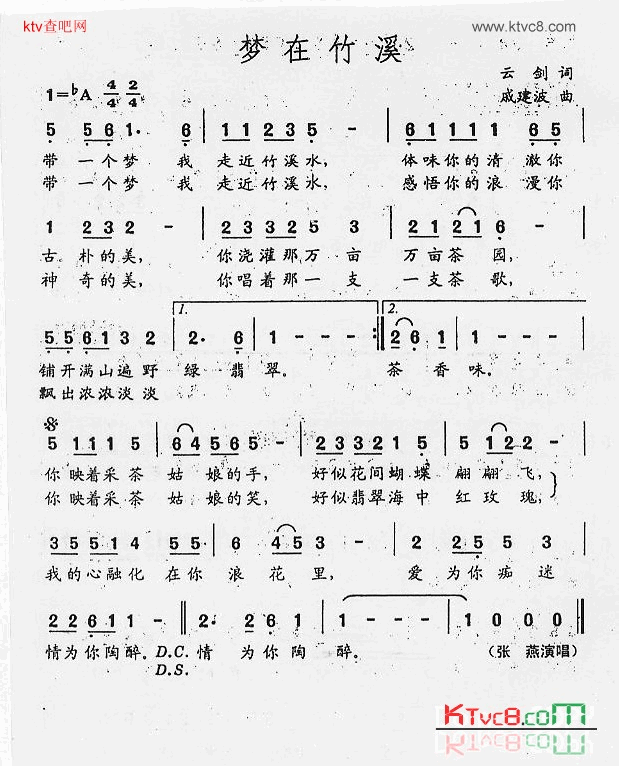 ktv查吧网
www.ktvc8.com
梦在竹溪
云剑词
戚建波 曲
1=♭A 4/4 2/4
5 5 6 1· 6 | 1 1 2 3 5 - | 6 1 1 1 1 6 5 |
带一个梦 我 走近竹溪水, 体味你的清澈你
带一个梦 我 走近竹溪水, 感悟你的浪漫你
1 2 3 2 - | 2 2 3 3 5 5 | 2 1 2 1 6 - |
古朴的美, 你浇灌那万亩 万亩茶园,
神奇的美, 你唱着那一支 一支茶歌,
1. 2.
5 5 6 1 3 2 | 2· 6 | 1 - - - :| 2 6 1 | 1 - - - |
铺开满山遍野 绿翡翠。 茶香味。
飘出浓浓淡淡
5 1 1 1 5 | 6 4 5 6 5 - | 2 3 3 2 1 5 | 5 1 2 2 - |
你映着采茶 姑娘的手, 好似花间蝴蝶 翩翩飞,
你映着采茶 姑娘的笑, 好似翡翠海中 红玫瑰,
3 5 5 5 1 4 | 5· 5 6 | 5 3 - - | 2 2 5 5 3 |
我的心融化 在你浪花里, 爱为你痴迷
2 2 6 1 1 - ‖ 2· 2 6 | 1 - - - | 1 0 0 0 ‖
情为你陶醉。D.C. 情为你陶醉。 (张燕演唱)
D.S.
KTvc8.com